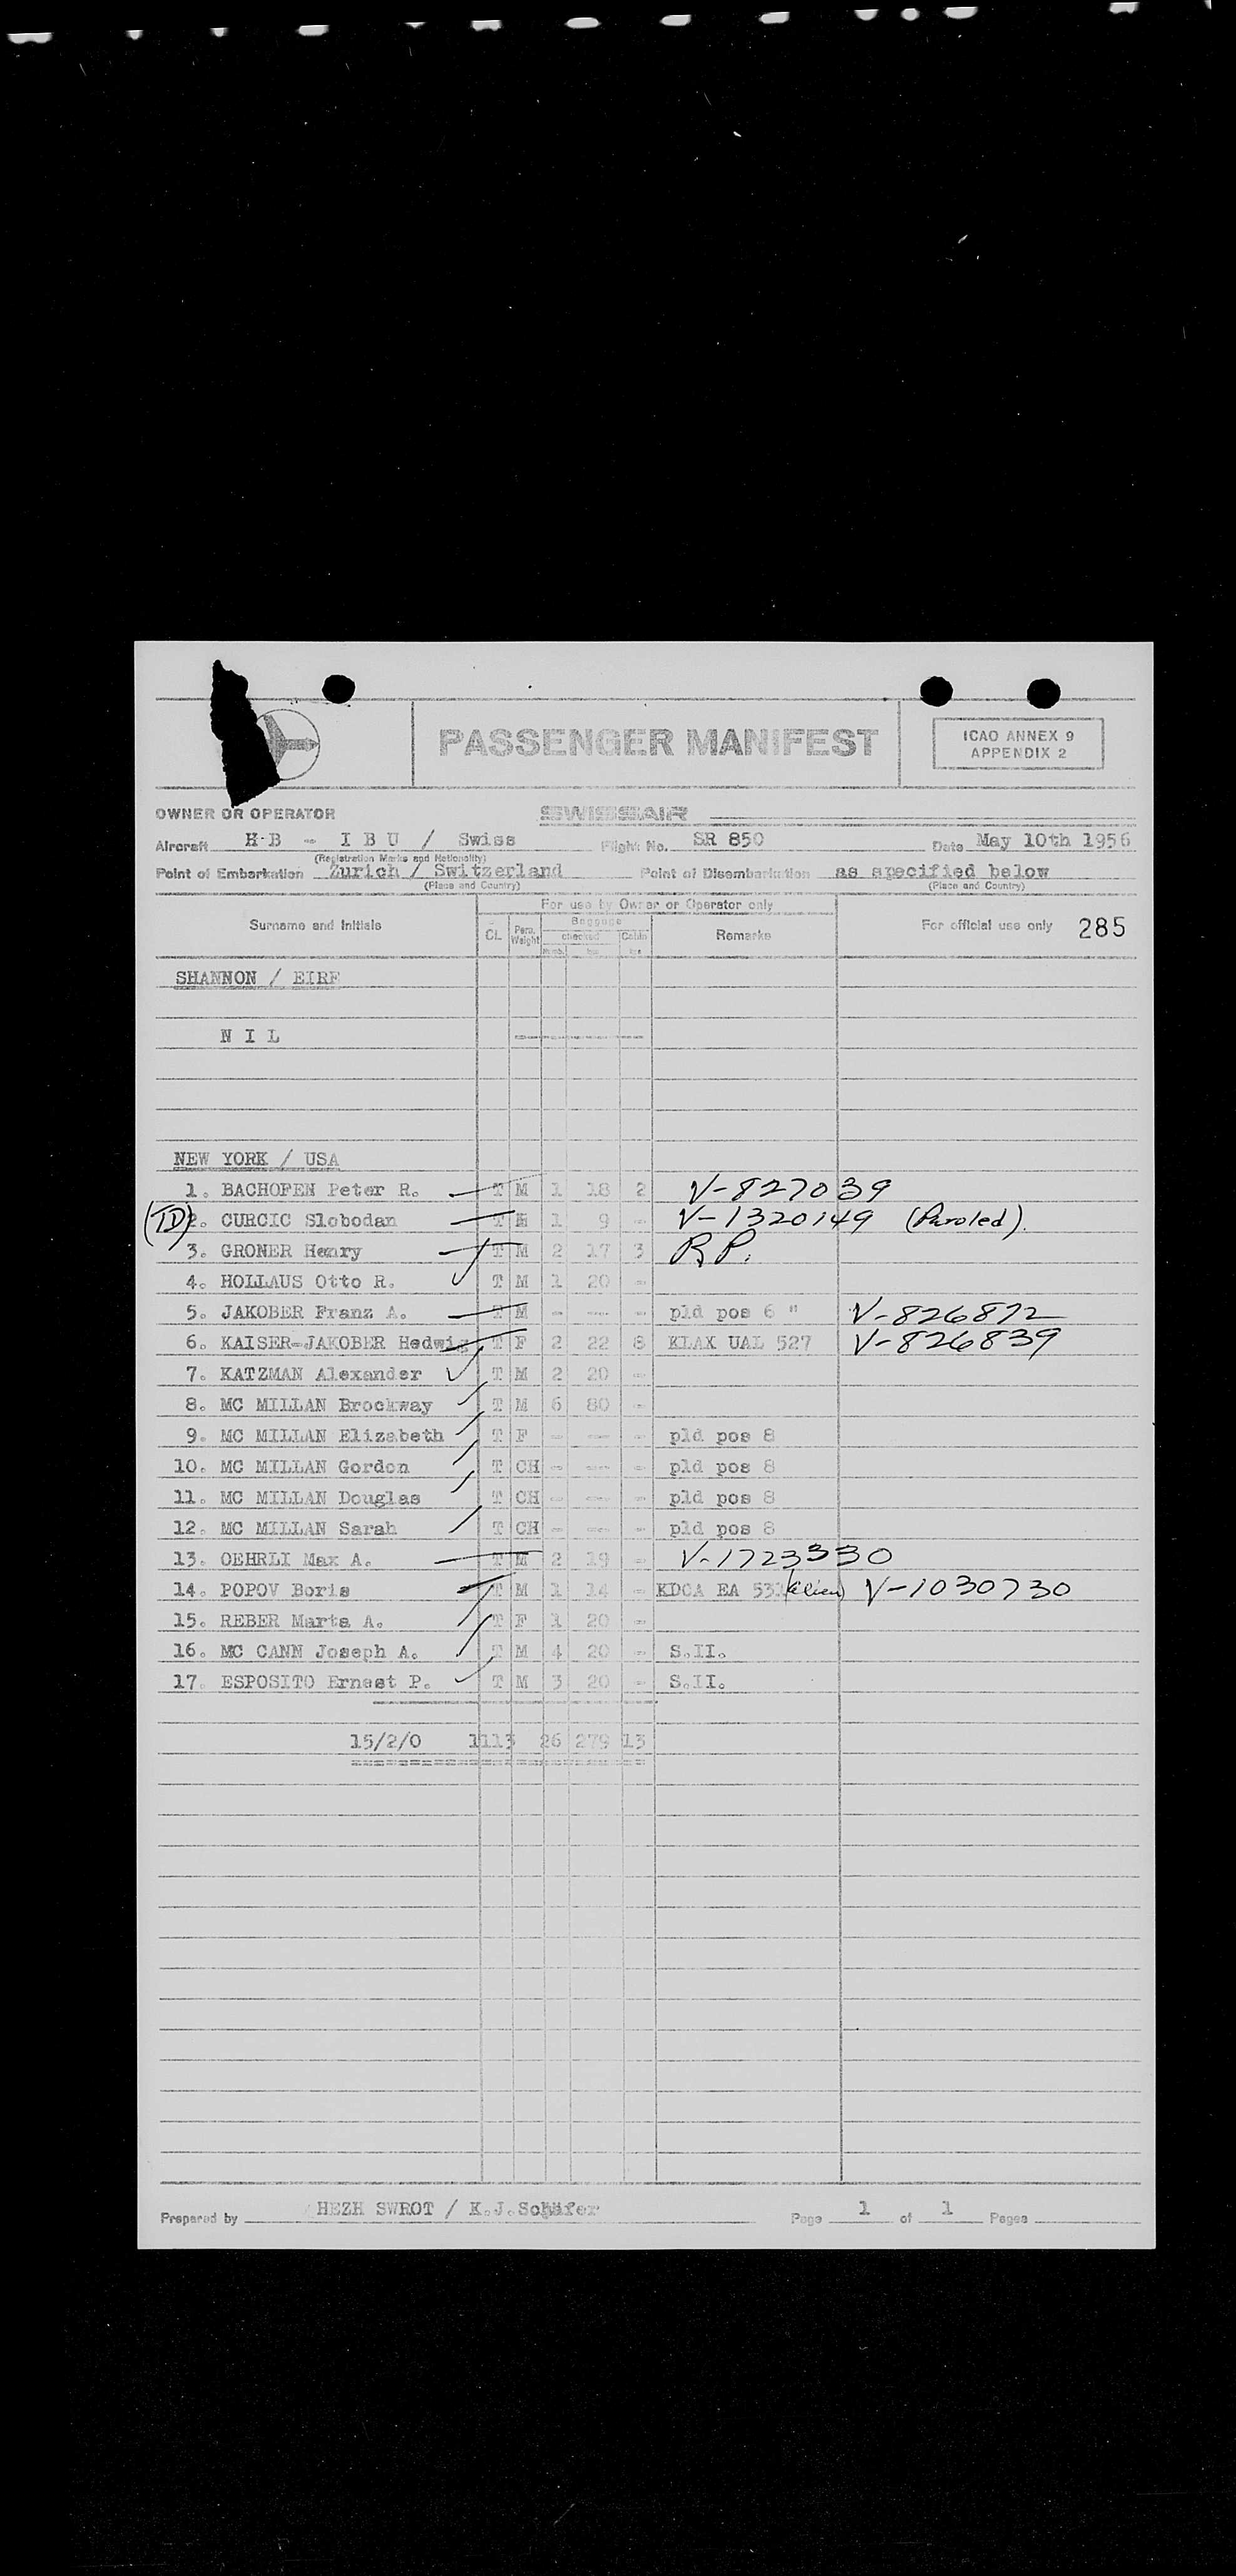 PASSENGER MANIFEST
ICAO ANNEX 9
APPENDIX 2
OWNER OR OPERATOR SWISSAIR
Aircraft H-B - I B U / Swiss Flight No. SR 850 Date May 10th 1956
(Registration Marks and Nationality)
Point of Embarkation Zurich / Switzerland Point of Disembarkation as specified below
(Place and Country) (Place and Country)
For use by Owner or Operator only
Surname and Initials CL Pers. Weight Baggage checked Cabin Remarks For official use only 285
Numb. kgs kgs
SHANNON / EIRE
N I L --------
NEW YORK / USA
1. BACHOFEN Peter R. T M 1 18 2 V-827039
(TD) 2. CURCIC Slobodan T M 1 9 - V-1320149 (Paroled).
3. GRONER Henry T M 2 17 3 R.P.
4. HOLLAUS Otto R. T M 1 20 -
5. JAKOBER Franz A. T M - --- - pld pos 6 " V-826872
6. KAISER-JAKOBER Hedwig T F 2 22 8 KLAX UAL 527 V-826839
7. KATZMAN Alexander T M 2 20 -
8. MC MILLAN Brockway T M 6 80 -
9. MC MILLAN Elizabeth T F - --- - pld pos 8
10. MC MILLAN Gordon T CH - --- - pld pos 8
11. MC MILLAN Douglas T CH - --- - pld pos 8
12. MC MILLAN Sarah T CH - --- - pld pos 8
13. OEHRLI Max A. T M 2 19 - V-1723330
14. POPOV Boris T M 1 14 - KDCA EA 531 (alien) V-1030730
15. REBER Marta A. T F 1 20 -
16. MC CANN Joseph A. T M 4 20 - S.II.
17. ESPOSITO Ernest P. T M 3 20 - S.II.
15/2/0 1113 26 279 13
Prepared by HEZH SWROT / K.J.Schäfer Page 1 of 1 Pages